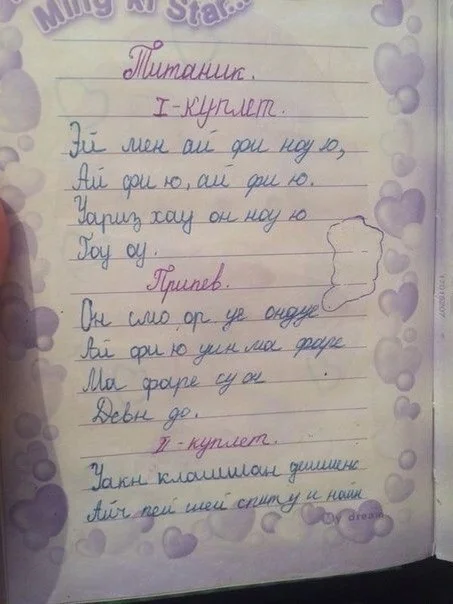 Ming ki Star...
Титаник.
I-куплет.
Эй мен ай фи ноу ю,
Ай фи ю, ай фи ю.
Уариз хау он ноу ю
Гоу оу.
Припев.
Он смо ор уе ондуе
Ай фи ю уин ма фаре
Ма фаре су он
Девн до.
II-куплет.
Уакн клашшан
Айч пей шей спиту и найн
My dream